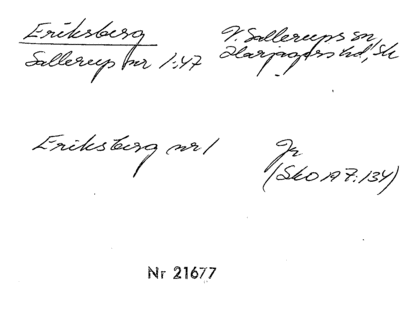 Eriksberg
Sallerup nr 1:47
V. Sallerups sn,
Harjagers hd, Sk
Eriksberg nr 1
Jr
(SkO 19 7:134)
Nr 21677